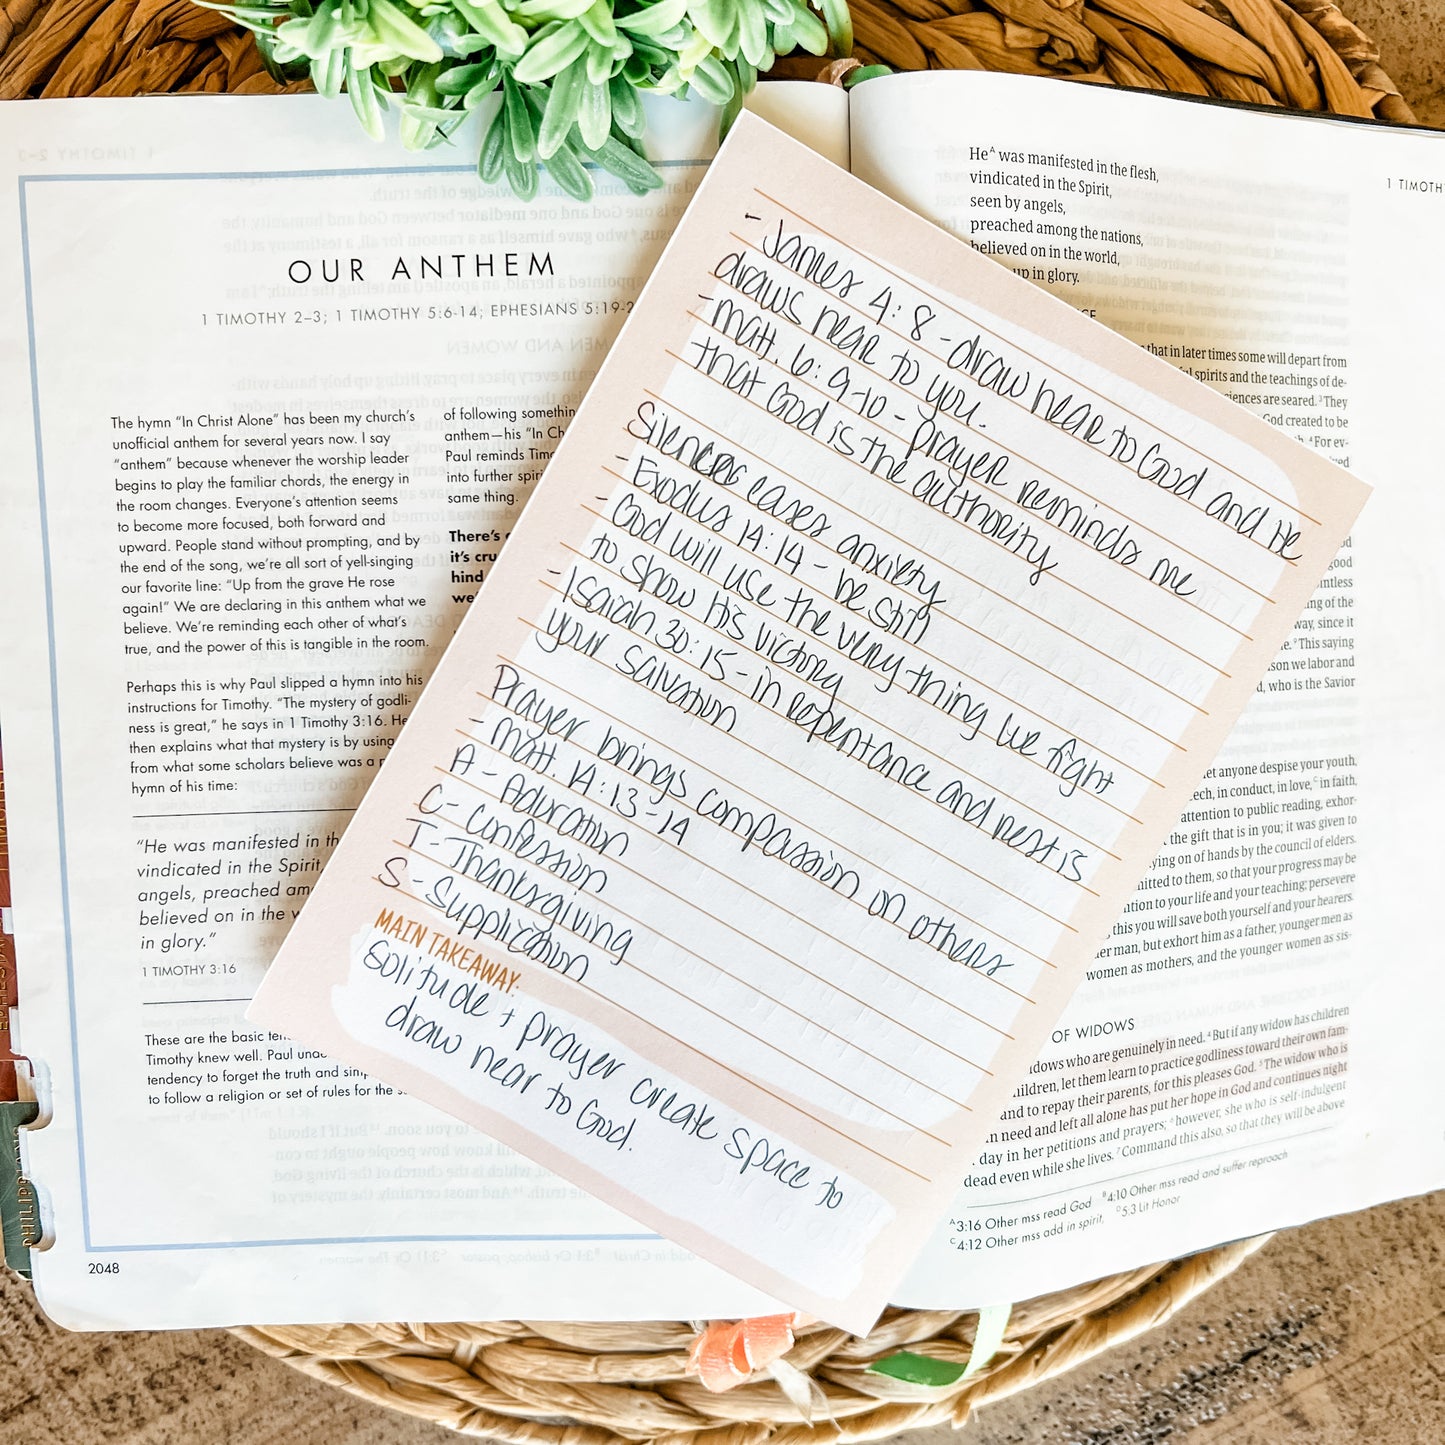 OUR ANTHEM
1 TIMOTHY 2–3; 1 TIMOTHY 5:6-14; EPHESIANS 5:19-2
The hymn “In Christ Alone” has been my church’s
unofficial anthem for several years now. I say
“anthem” because whenever the worship leader
begins to play the familiar chords, the energy in
the room changes. Everyone’s attention seems
to become more focused, both forward and
upward. People stand without prompting, and by
the end of the song, we’re all sort of yell-singing
our favorite line: “Up from the grave He rose
again!” We are declaring in this anthem what we
believe. We’re reminding each other of what’s
true, and the power of this is tangible in the room.
Perhaps this is why Paul slipped a hymn into his
instructions for Timothy. “The mystery of godli-
ness is great,” he says in 1 Timothy 3:16. He
then explains what that mystery is by using
from what some scholars believe was a
hymn of his time:
“He was manifested in
vindicated in the Spirit,
angels, preached
believed on in the
in glory.”
1 TIMOTHY 3:16
These are the basic
Timothy knew well. Paul
tendency to forget the truth and
to follow a religion or set of rules for the
2048
of following
anthem—his “In
Paul reminds
into further
same thing.
There’s
it’s
hind
- James 4:8 - draw near to God and He
draws near to you.
- Matt. 6:9-10 - prayer reminds me
that God is the authority
Silence eases anxiety
- Exodus 14:14 - be still
- God will use the very thing we fight
to show His victory
- Isaiah 30:15 - in repentance and rest is
your salvation
Prayer brings compassion on others
- Matt. 14:13-14
A - Adoration
C - Confession
T - Thanksgiving
S - Supplication
MAIN TAKEAWAY:
Solitude + prayer create space to
draw near to God.
1 TIMOTH
He^A was manifested in the flesh,
vindicated in the Spirit,
seen by angels,
preached among the nations,
believed on in the world,
up in glory.
that in later times some will depart from
spirits and the teachings of de-
are seared. ³They
God created to be
⁴For ev-
way, since it
⁹This saying
we labor and
who is the Savior
let anyone despise your youth,
in conduct, in love,^C in faith,
attention to public reading, exhor-
the gift that is in you; it was given to
on of hands by the council of elders.
to them, so that your progress may be
to your life and your teaching; persevere
this you will save both yourself and your hearers.
man, but exhort him as a father, younger men as
women as mothers, and the younger women as sis-
OF WIDOWS
who are genuinely in need. ⁴But if any widow has children
let them learn to practice godliness toward their own fam-
and to repay their parents, for this pleases God. ⁵The widow who is
in need and left all alone has put her hope in God and continues night
day in her petitions and prayers; ⁶however, she who is self-indulgent
dead even while she lives. ⁷Command this also, so that they will be above
^A3:16 Other mss read God ^B4:10 Other mss read and suffer reproach
^C4:12 Other mss add in spirit, ^D5:3 Lit Honor
PHILIPPIANS